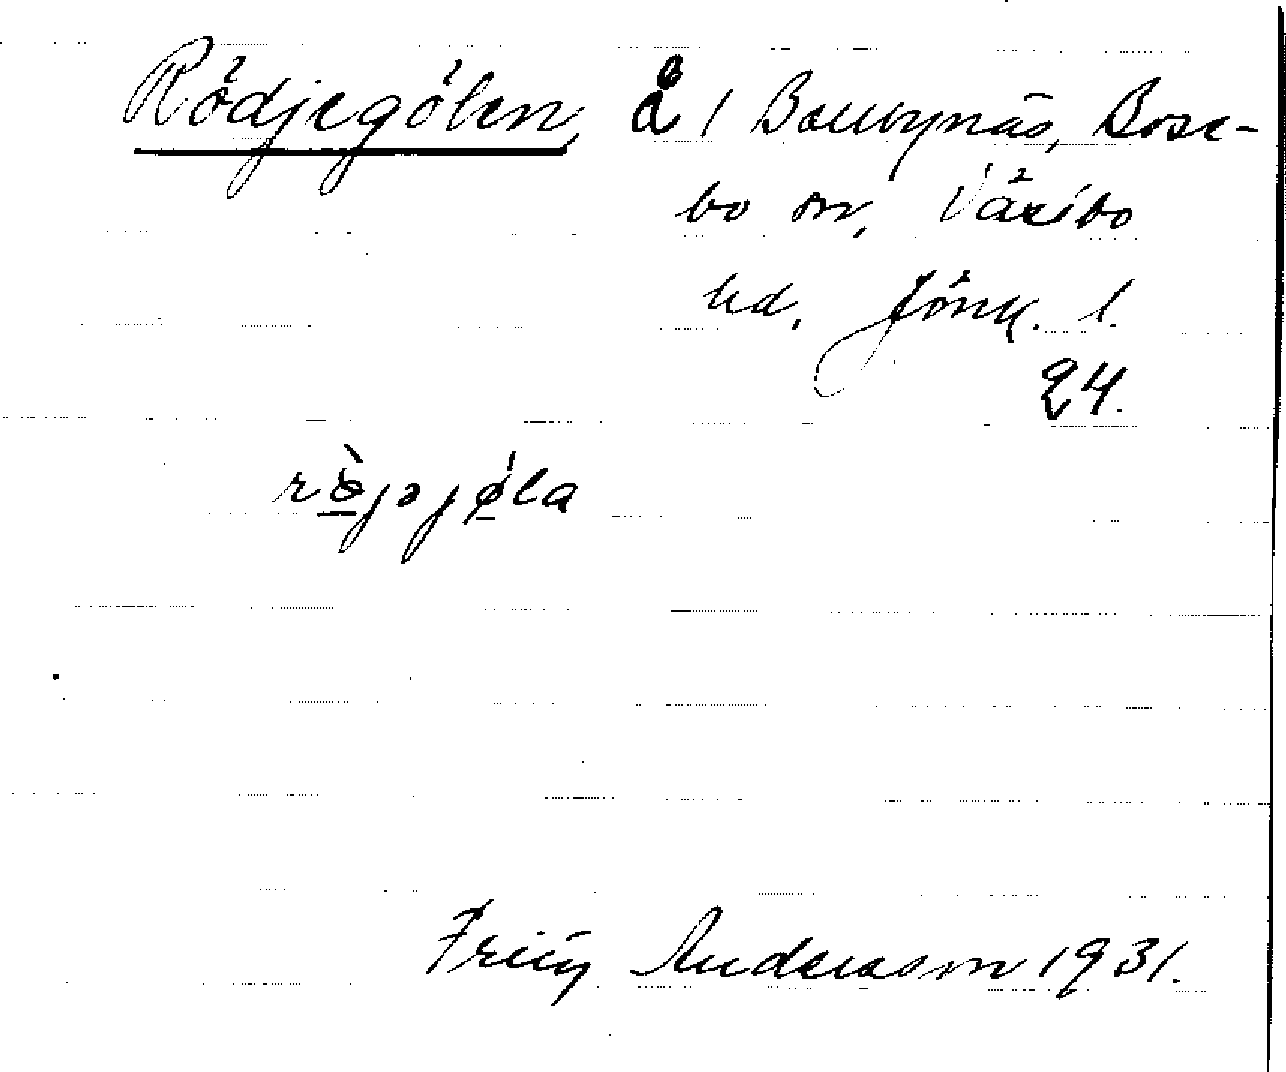 Rödjegölen, å 1 Bounynäs, Bose-
bo sn, Västbo
hd, Jönk. l.
24.
rö̀jəjø̍la
Fritz Andersson 1931.